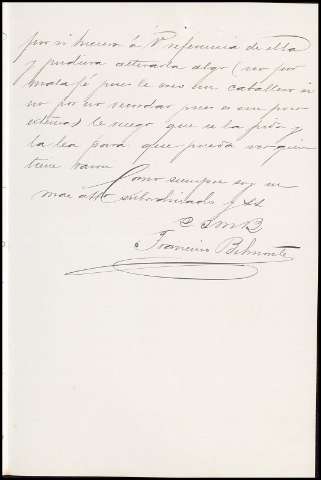 por si hiciera á V referencia de ella
y pudiera alterarla algo (no por
mala fé pues le creo un caballero si
no por no recordar pues es un poco
extensa) le ruego que se la pida y
la lea para que pueda ver quien
tiene razon
Como siempre soy su
mas atto subordinado y ss
Q S M B
Francisco Belmonte